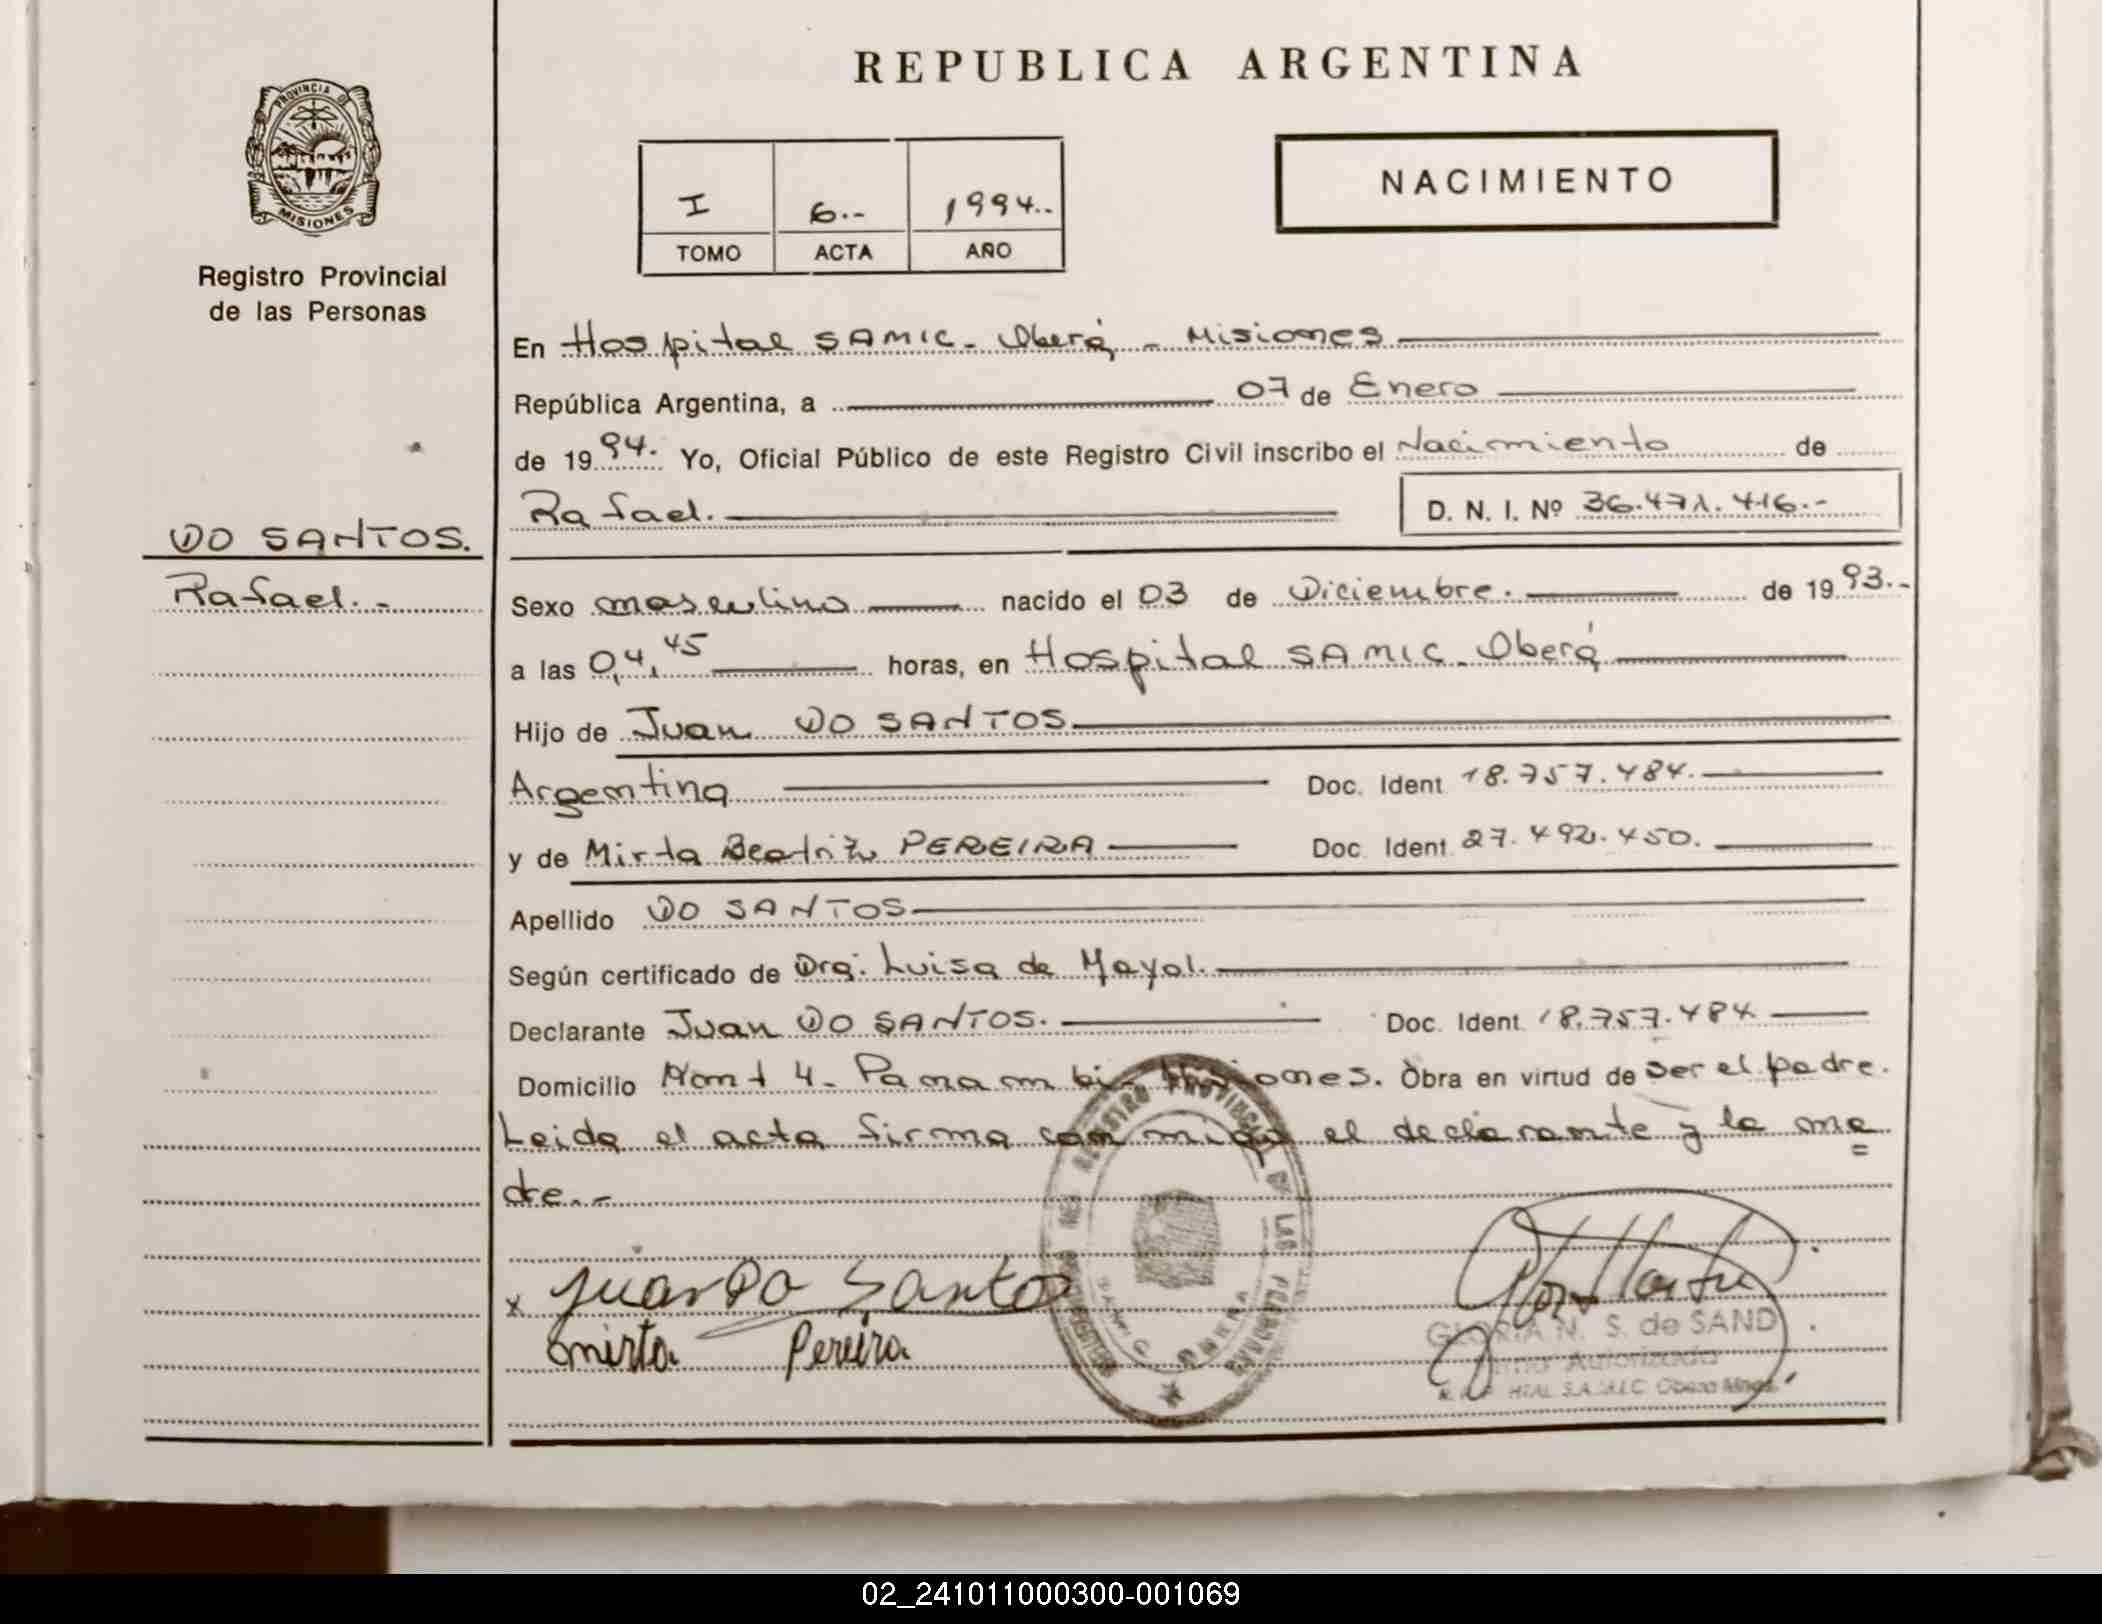 REPUBLICA ARGENTINA
PROVINCIA DE
MISIONES
Registro Provincial
de las Personas
I 6.- 1994..
TOMO ACTA AÑO
NACIMIENTO
En Hospital SAMIC - Oberá - Misiones
República Argentina, a 07 de Enero
de 1994. Yo, Oficial Público de este Registro Civil inscribo el Nacimiento de
Rafael. D. N. I. Nº 36.471.416.-
DO SANTOS.
Rafael.-
Sexo masculino nacido el 03 de Diciembre. de 1993.-
a las 04,45 horas, en Hospital SAMIC - Oberá
Hijo de Juan DO SANTOS
Argentina Doc. Ident 18.757.484.
y de Mirta Beatriz PEREIRA Doc. Ident 27.492.450.
Apellido DO SANTOS
Según certificado de Dra. Luisa de Mayol.
Declarante Juan DO SANTOS. Doc. Ident 18.757.484
Domicilio Km 4 - Panambi - Misiones. Obra en virtud de ser el padre.
Leida el acta firma con migo el declarante y la ma=
dre.-
x Juan Do Santos
mirta Pereira
REGISTRO PROVINCIAL DE LAS PERSONAS
OBERA
GLORIA N. S. de SAND
Firma Autorizada
HTAL S.A.M.I.C Obera Mnes.
02_241011000300-001069